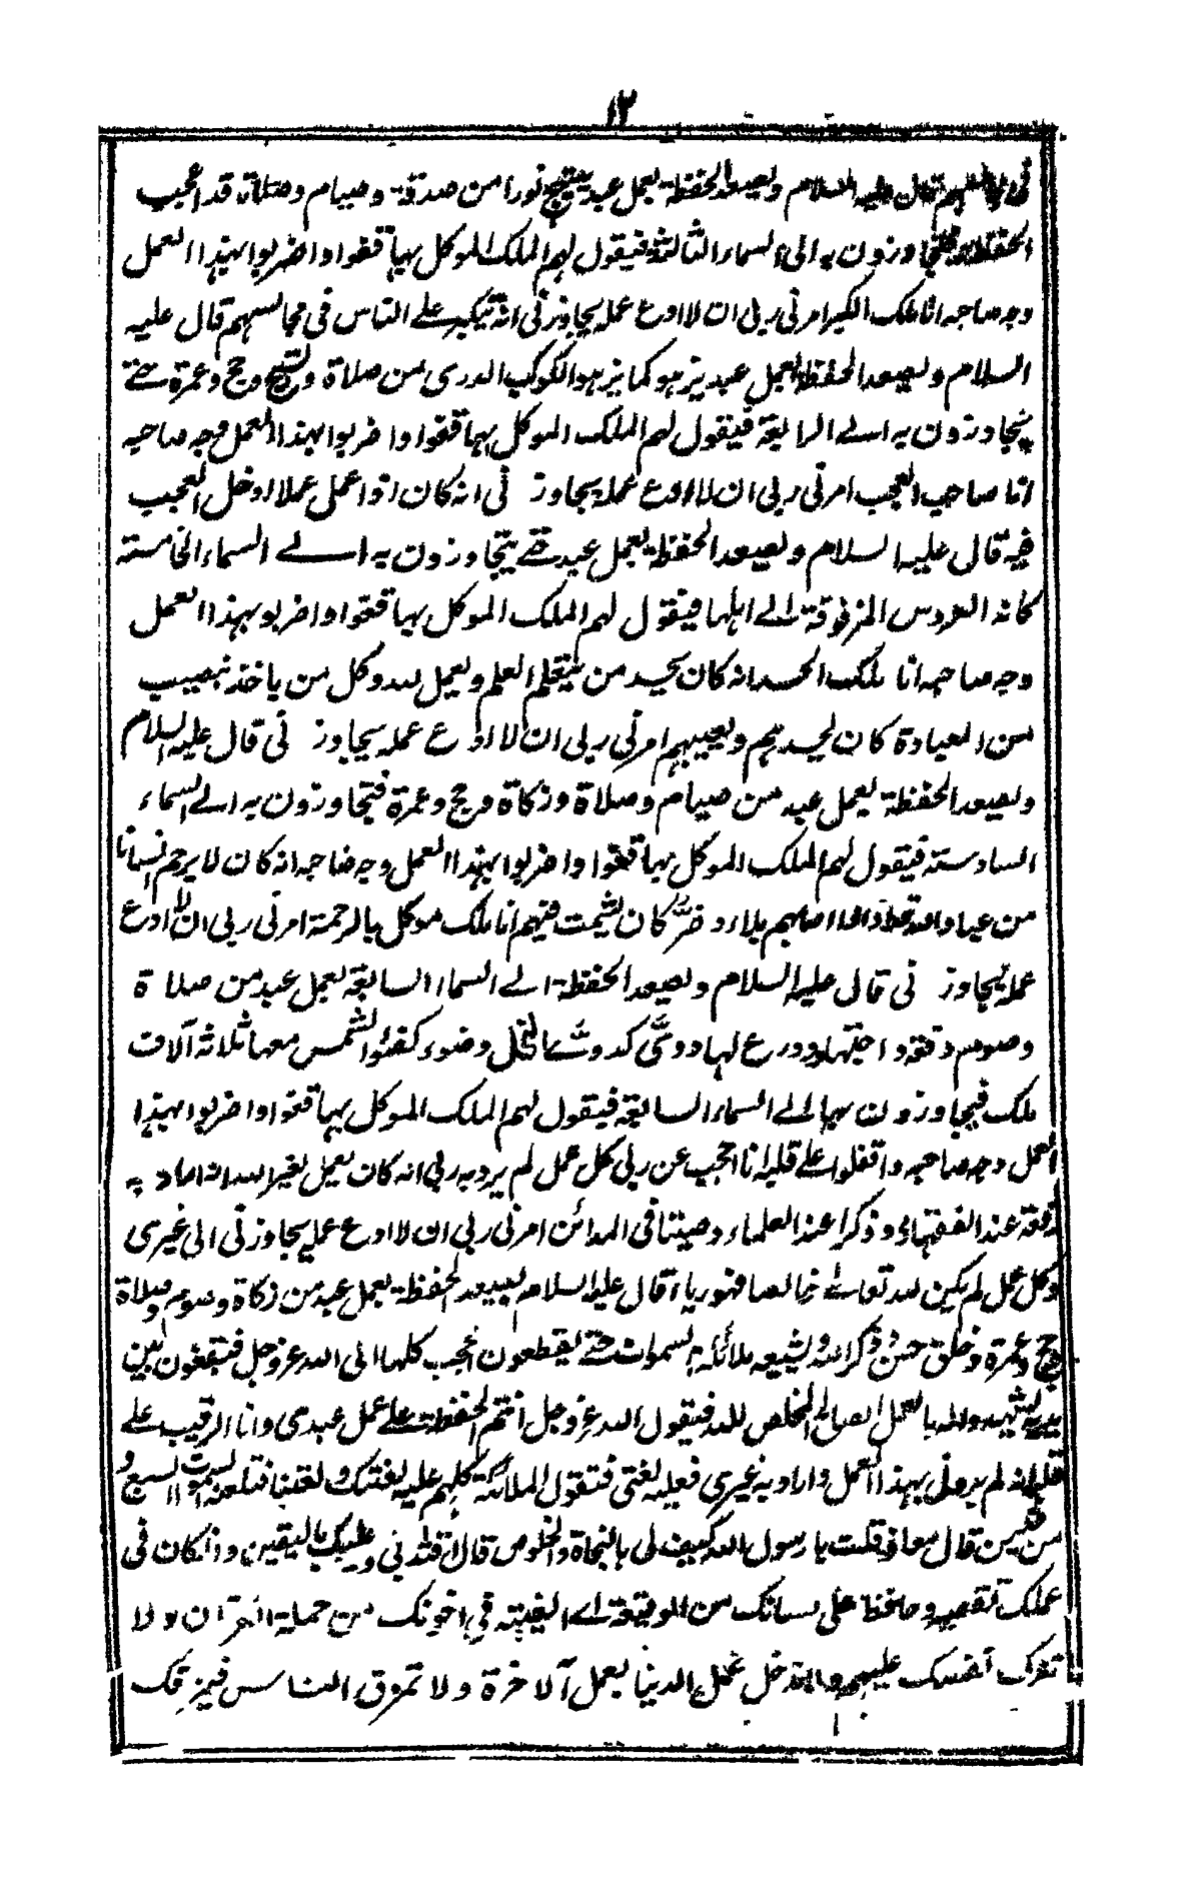 ١٢
فى مجالسهم قال عليه السلام وليصعد الحفظة بعمل عبد يبتهج نورا من صدقة وصيام وصلاة قد اعجب
الحفظة فيتجاوزون به الى السماء الثالثة فيقول لهم الملك الموكل بها قفوا واضربوا بهذا العمل
وجه صاحبه انا ملك الكبر امرنى ربى ان لا ادع عمله يجاوزنى انه يتكبر على الناس فى مجالسهم قال عليه
السلام وليصعد الحفظة بعمل عبد يزهو كما يزهو الكوكب الدرى من صلاة وتسبيح وحج وعمرة حتى
يتجاوزون به الى الرابعة فيقول لهم الملك الموكل بها قفوا واضربوا بهذا العمل وجه صاحبه
انا صاحب العجب امرنى ربى ان لا ادع عمله يجاوز نى انه كان اذا عمل عملا ادخل العجب
فيه قال عليه السلام وليصعد الحفظة بعمل عبد حتى يتجاوزون به الى السماء الخامسة
كانه العروس المزفوفة الى اهلها فيقول لهم الملك الموكل بها قفوا واضربوا بهذا العمل
وجه صاحبه انا ملك الحسد انه كان يحسد من يتعلم العلم ويعمل لله وكل من ياخذ نصيب
من العبادة كان يحسدهم ويعيبهم امرنى ربى ان لا ادع عمله يجاوز نى قال عليه السلام
وليصعد الحفظة بعمل عبد من صيام وصلاة وزكاة وحج وعمرة فيتجاوزون به الى السماء
السادسة فيقول لهم الملك الموكل بها قفوا واضربوا بهذا العمل وجه صاحبه انه كان لا يرحم انسانا
من عباد الله قط اذا اصابهم بلاء و ضر كان يشمت فيهم انا ملك موكل بالرحمة امرنى ربى ان لا ادع
عمله يجاوز نى قال عليه السلام وليصعد الحفظة الى السماء السابعة بعمل عبد من صلاة
وصوم وفقه واجتهاد وورع لها دوى كدوى النحل وضوء كضوء الشمس معها ثلاثة آلاف
ملك فيجاوزون بها الى السماء السابعة فيقول لهم الملك الموكل بها قفوا واضربوا بهذا
العمل وجه صاحبه واقفلوا على قلبه انا احجب عن ربى كل عمل لم يرد به ربى انه كان يعمل لغير الله انه اراد به
رفعة عند الفقهاء وذكرا عند العلماء وصيتا فى المدائن امرنى ربى ان لا ادع عمله يجاوزنى الى غيرى
وكل عمل لم يكن لله تعالى خالصا فهو رياء قال عليه السلام ليصعد الحفظة بعمل عبد من زكاة وصوم وصلاة
وحج وعمرة وخلق حسن وذكر الله وليشيعه ملائكة السموات حتى يقطعون الحجب كلها الى الله عز وجل فيقفون بين
يديه ليشهدوا له بالعمل الصالح المخلص لله فيقول الله عز وجل انتم الحفظة على عمل عبدى وانا الرقيب على
قلبه انه لم يردنى بهذا العمل واراد به غيرى فعليه لعنتى فتقول الملائكة كلهم عليه لعنتك ولعنتنا فتلعنه السموات السبع و
من فيهن قال معاذ قلت يا رسول الله كيف لى بالنجاة والخلوص قال اقتد بى وعليك باليقين وان كان فى
عملك تقصير وحافظ على لسانك من الوقيعة اى الغيبة فى اخوانك من حملة القران ولا
تزك نفسك عليهم ولا تدخل عمل الدنيا بعمل الآخرة ولا تمزق الناس فيمزقك